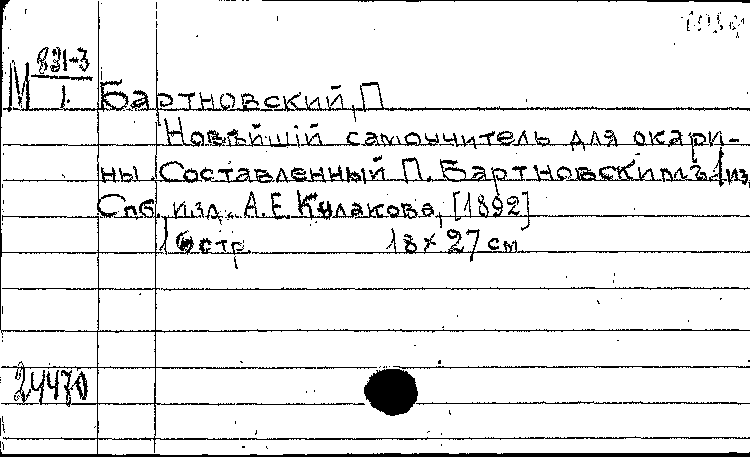 М 831-3
1.
Бартновский, П
Новѣйшій самоучитель для окари-
ны. Составленный П. Бартновскимъ 1 из
Спб., изд. А. Е. Кулакова, [1892]
16 стр. 18 × 27 см
24470